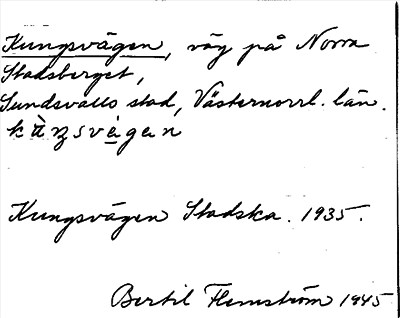 Kungsvägen, väg på Norra
Stadsberget,
Sundsvalls stad, Västernorrl. län.
kùŋsvɛ̀gan
Kungsvägen Stadska. 1935.
Bertil Flemström 1945